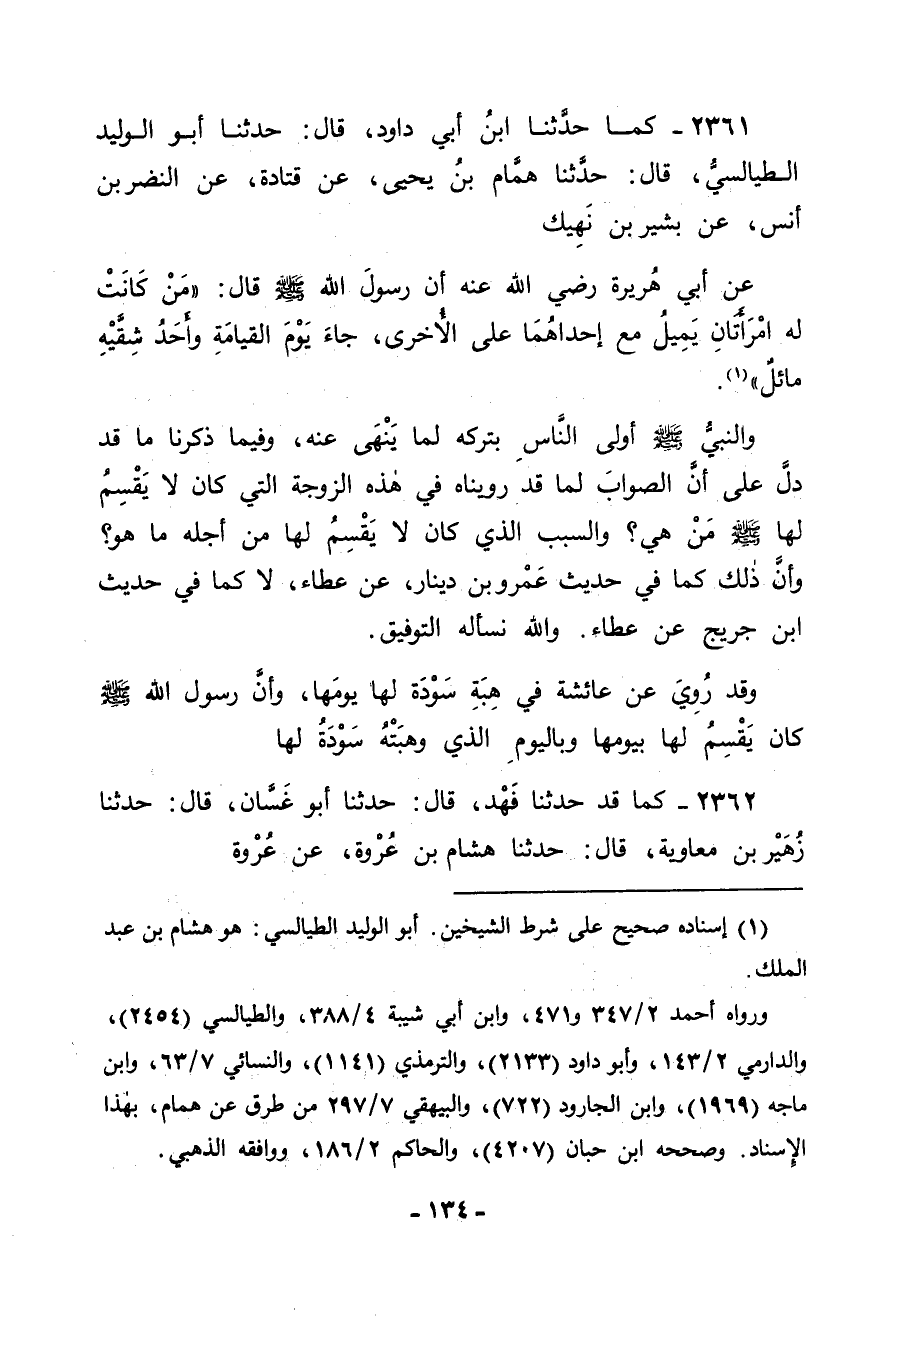 ٢٣٦١ - كمـا حدَّثنـا ابنُ أبي داود، قال: حدثنـا أبـو الـوليد
الـطيالسيُّ، قال: حدَّثنا همَّام بنُ يحيى، عن قتادة، عن النضر بن
أنس، عن بشير بن نَهِيك
عن أبي هُريرة رضي الله عنه أن رسولَ الله ﷺ قال: «مَنْ كَانَتْ
له امْرَأَتَانِ يَمِيلُ مع إحداهُمَا على الأُخرى، جاءَ يَوْمَ القيامَةِ وأَحَدُ شِقَّيْهِ
مائلٌ»(١).
والنبيُّ ﷺ أولى النَّاسِ بتركه لما يَنْهَى عنه، وفيما ذكرنا ما قد
دلَّ على أنَّ الصوابَ لما قد رويناه في هٰذه الزوجة التي كان لا يَقْسِمُ
لها ﷺ مَنْ هي؟ والسبب الذي كان لا يَقْسِمُ لها من أجله ما هو؟
وأنَّ ذٰلك كما في حديث عَمْرو بن دينار، عن عطاء، لا كما في حديث
ابن جريج عن عطاء. والله نسأله التوفيق.
وقد رُوِيَ عن عائشة في هِبَةِ سَوْدَة لها يومَها، وأنَّ رسول الله ﷺ
كان يَقْسِمُ لها بيومها وباليومِ الذي وهبَتْهُ سَوْدَةُ لها
٢٣٦٢ - كما قد حدثنا فَهْد، قال: حدثنا أبو غَسَّان، قال: حدثنا
زُهَيْر بن معاوية، قال: حدثنا هشام بن عُرْوة، عن عُرْوة
(١) إسناده صحيح على شرط الشيخين. أبو الوليد الطيالسي: هو هشام بن عبد
الملك.
ورواه أحمد ٣٤٧/٢ و٤٧١، وابن أبي شيبة ٣٨٨/٤، والطيالسي (٢٤٥٤)،
والدارمي ١٤٣/٢، وأبو داود (٢١٣٣)، والترمذي (١١٤١)، والنسائي ٦٣/٧، وابن
ماجه (١٩٦٩)، وابن الجارود (٧٢٢)، والبيهقي ٢٩٧/٧ من طرق عن همام، بهٰذا
الإسناد. وصححه ابن حبان (٤٢٠٧)، والحاكم ١٨٦/٢، ووافقه الذهبي.
- ١٣٤ -